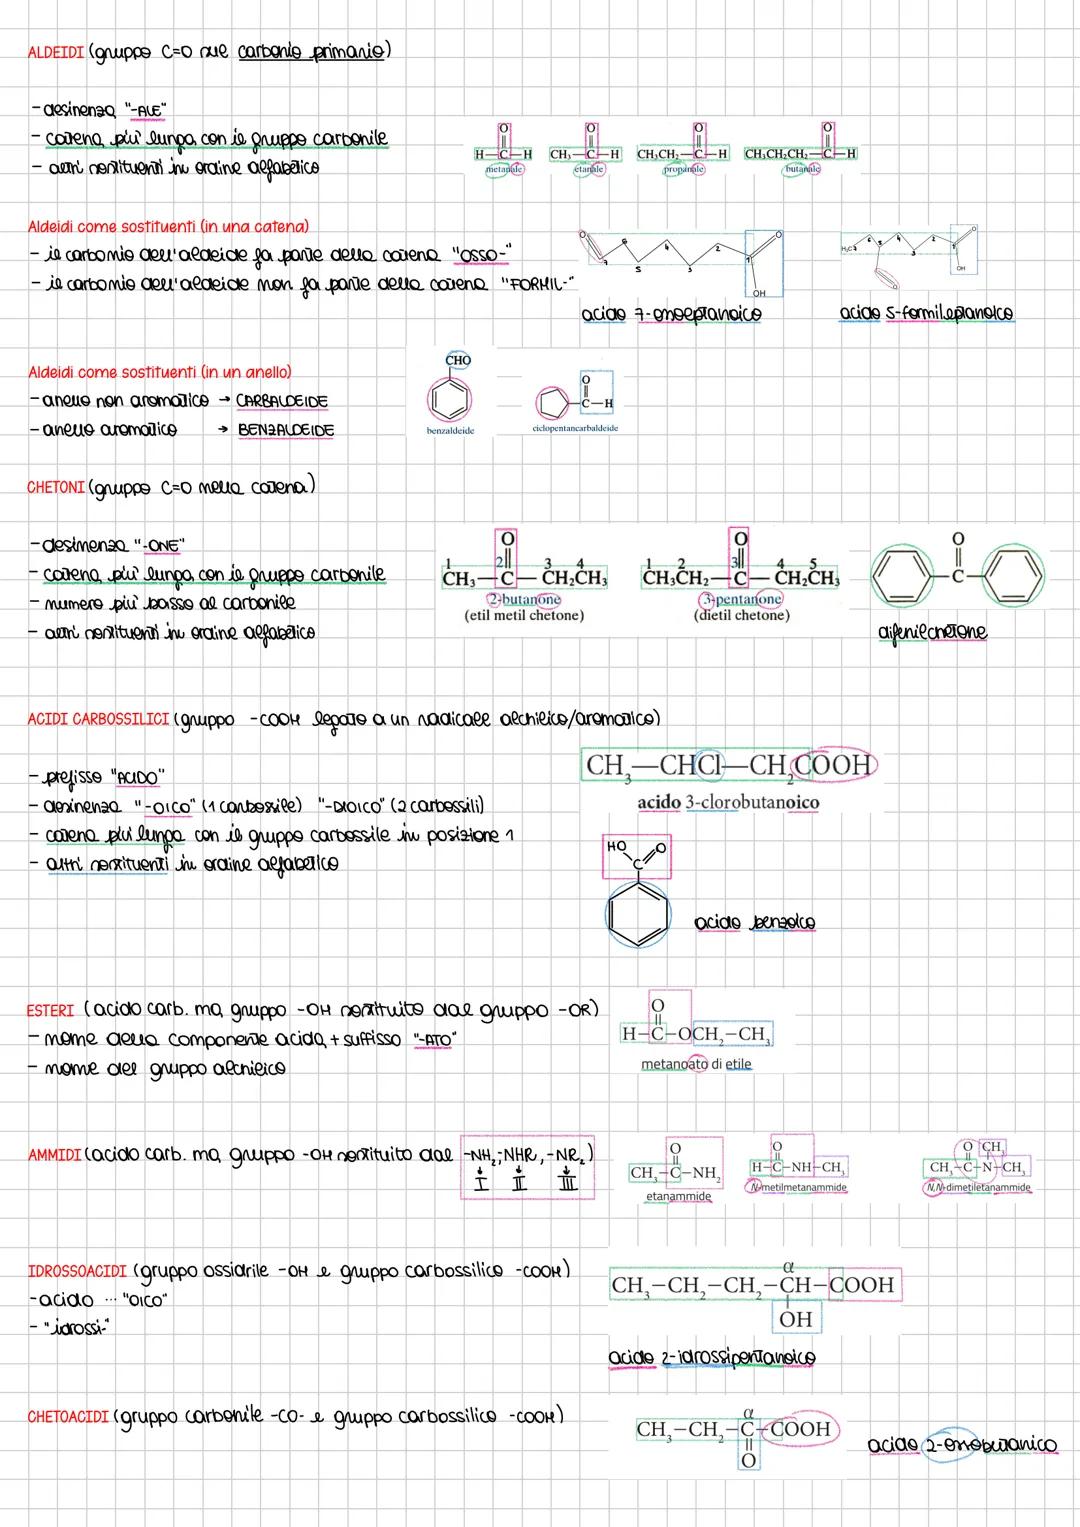 ALDEIDI (gruppo C=O sul carbonio primario)
- desinenza "-ALE"
- catena più lunga con il gruppo carbonile
- altri sostituenti in ordine alfabetico
O O O O
H-C-H CH₃-C-H CH₃CH₂-C-H CH₃CH₂CH₂-C-H
metanale etanale propanale butanale
Aldeidi come sostituenti (in una catena)
- il carbonio dell'aldeide fa parte della catena "OSSO-"
- il carbonio dell'aldeide non fa parte della catena "FORMIL-"
O 7 6 5 4 3 2 1 O OH
H₃C 7 6 5 4 3 2 1 O OH O
acido 7-ossoeptanoico acido 5-formileptanoico
Aldeidi come sostituenti (in un anello)
- anello non aromatico → CARBALDEIDE
- anello aromatico → BENZALDEIDE
CHO
benzaldeide
O
C-H
ciclopentancarbaldeide
CHETONI (gruppo C=O nella catena)
- desinenza "-ONE"
- catena più lunga con il gruppo carbonile
- numero più basso al carbonile
- altri sostituenti in ordine alfabetico
O
1 2 3 4
CH₃-C-CH₂CH₃
2-butanone
(etil metil chetone)
O
1 2 3 4 5
CH₃CH₂-C-CH₂CH₃
3-pentanone
(dietil chetone)
O
C
difenilchetone
ACIDI CARBOSSILICI (gruppo -COOH legato a un radicale alchilico/aromatico)
- prefisso "ACIDO"
- desinenza "-OICO" (1 carbossile) "-DIOICO" (2 carbossili)
- catena più lunga con il gruppo carbossile in posizione 1
- altri sostituenti in ordine alfabetico
CH₃-CHCl-CH₂COOH
acido 3-clorobutanoico
HO O
C
acido benzoico
ESTERI (acido carb. ma gruppo -OH sostituito dal gruppo -OR)
- nome della componente acida + suffisso "-ATO"
- nome del gruppo alchilico
O
H-C-OCH₂-CH₃
metanoato di etile
AMMIDI (acido carb. ma gruppo -OH sostituito dal -NH₂,-NHR,-NR₂)
I II III
O
CH₃-C-NH₂
etanammide
O
H-C-NH-CH₃
N-metilmetanammide
O CH₃
CH₃-C-N-CH₃
N,N-dimetiletanammide
IDROSSOACIDI (gruppo ossidrile -OH e gruppo carbossilico -COOH)
- acido ... "OICO"
- "idrossi-"
α
CH₃-CH₂-CH₂-CH-COOH
OH
acido 2-idrossipentanoico
CHETOACIDI (gruppo carbonile -CO- e gruppo carbossilico -COOH)
α
CH₃-CH₂-C-COOH
O
acido 2-ossobutanico